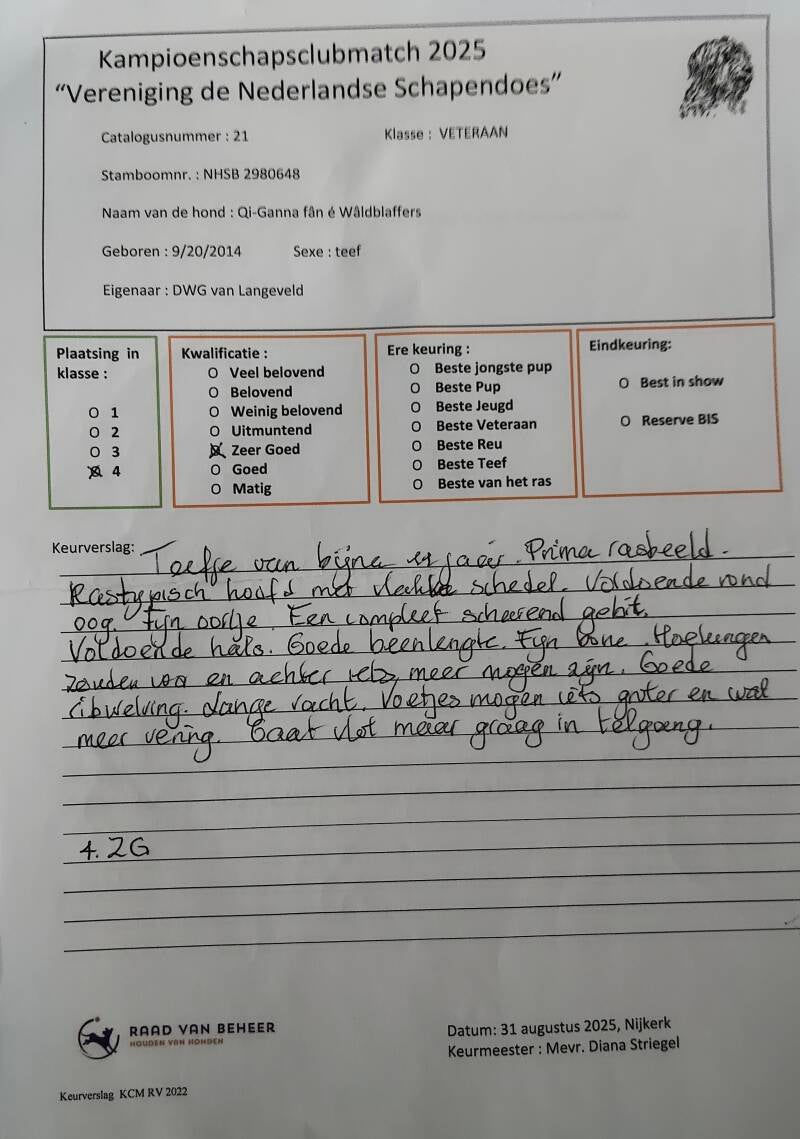 Kampioenschapsclubmatch 2025
“Vereniging de Nederlandse Schapendoes”
Catalogusnummer : 21 Klasse : VETERAAN
Stamboomnr. : NHSB 2980648
Naam van de hond : Qi-Ganna fân é Wâldblaffers
Geboren : 9/20/2014 Sexe : teef
Eigenaar : DWG van Langeveld
Plaatsing in
klasse :
O 1
O 2
O 3
4
Kwalificatie :
O Veel belovend
O Belovend
O Weinig belovend
O Uitmuntend
Zeer Goed
O Goed
O Matig
Ere keuring :
O Beste jongste pup
O Beste Pup
O Beste Jeugd
O Beste Veteraan
O Beste Reu
O Beste Teef
O Beste van het ras
Eindkeuring:
O Best in show
O Reserve BIS
Keurverslag: Teefje van bijna jaar. Prima rasbeeld.
Rastypisch hoofd met vlakke schedel. Voldoende rond
oog. Fijn oortje. Een compleet scheerend gebit.
Voldoende hals. Goede beenlengte. Fijn bone. Hoekingen
zouden voor en achter iets meer mogen zijn. Goede
ribwelving. Lange vacht. Voetjes mogen iets groter en wat
meer vering. Gaat vlot maar graag in telgang.
4. ZG
RAAD VAN BEHEER
HOUDEN VAN HONDEN
Datum: 31 augustus 2025, Nijkerk
Keurmeester : Mevr. Diana Striegel
Keurverslag KCM RV 2022